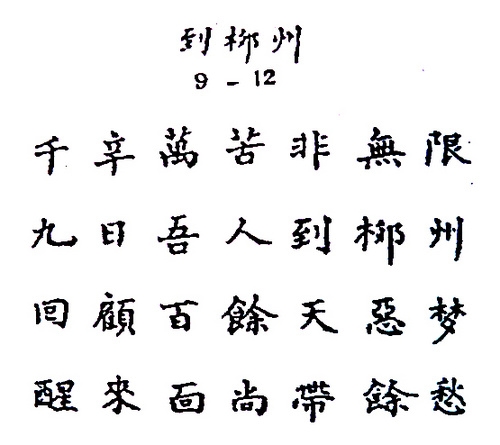 到柳州
9 - 12
千辛萬苦非無限
九日吾人到柳州
回顧百餘天惡梦
醒來面尚帶餘愁